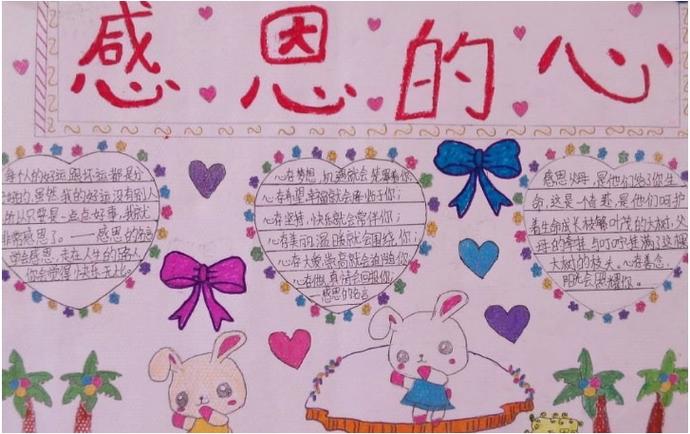 感恩的心
每个人的好运跟坏运都是公
的,虽然我的好运没有别人
所以只要是一点点好事,我就
非常感恩了。——感恩的名言
学会感恩,走在人生的路上
你会觉得快乐无比。
心存梦想,机遇就会笼罩着你;
心存希望,幸福就会降临于你;
心存坚持,快乐就会常伴你;
心存美丽,温暖就会围绕你;
心存大爱,崇高就会追随你
心存他人,真情会回报你。
感恩的名言
感恩父母,是他们给你生
命,这是一个奇恩,是他们呵护
着生命成长枝繁叶茂的大树,父
母的牵挂与叮咛挂满了这棵
大树的枝头。心存善念,
阳光会照耀你。